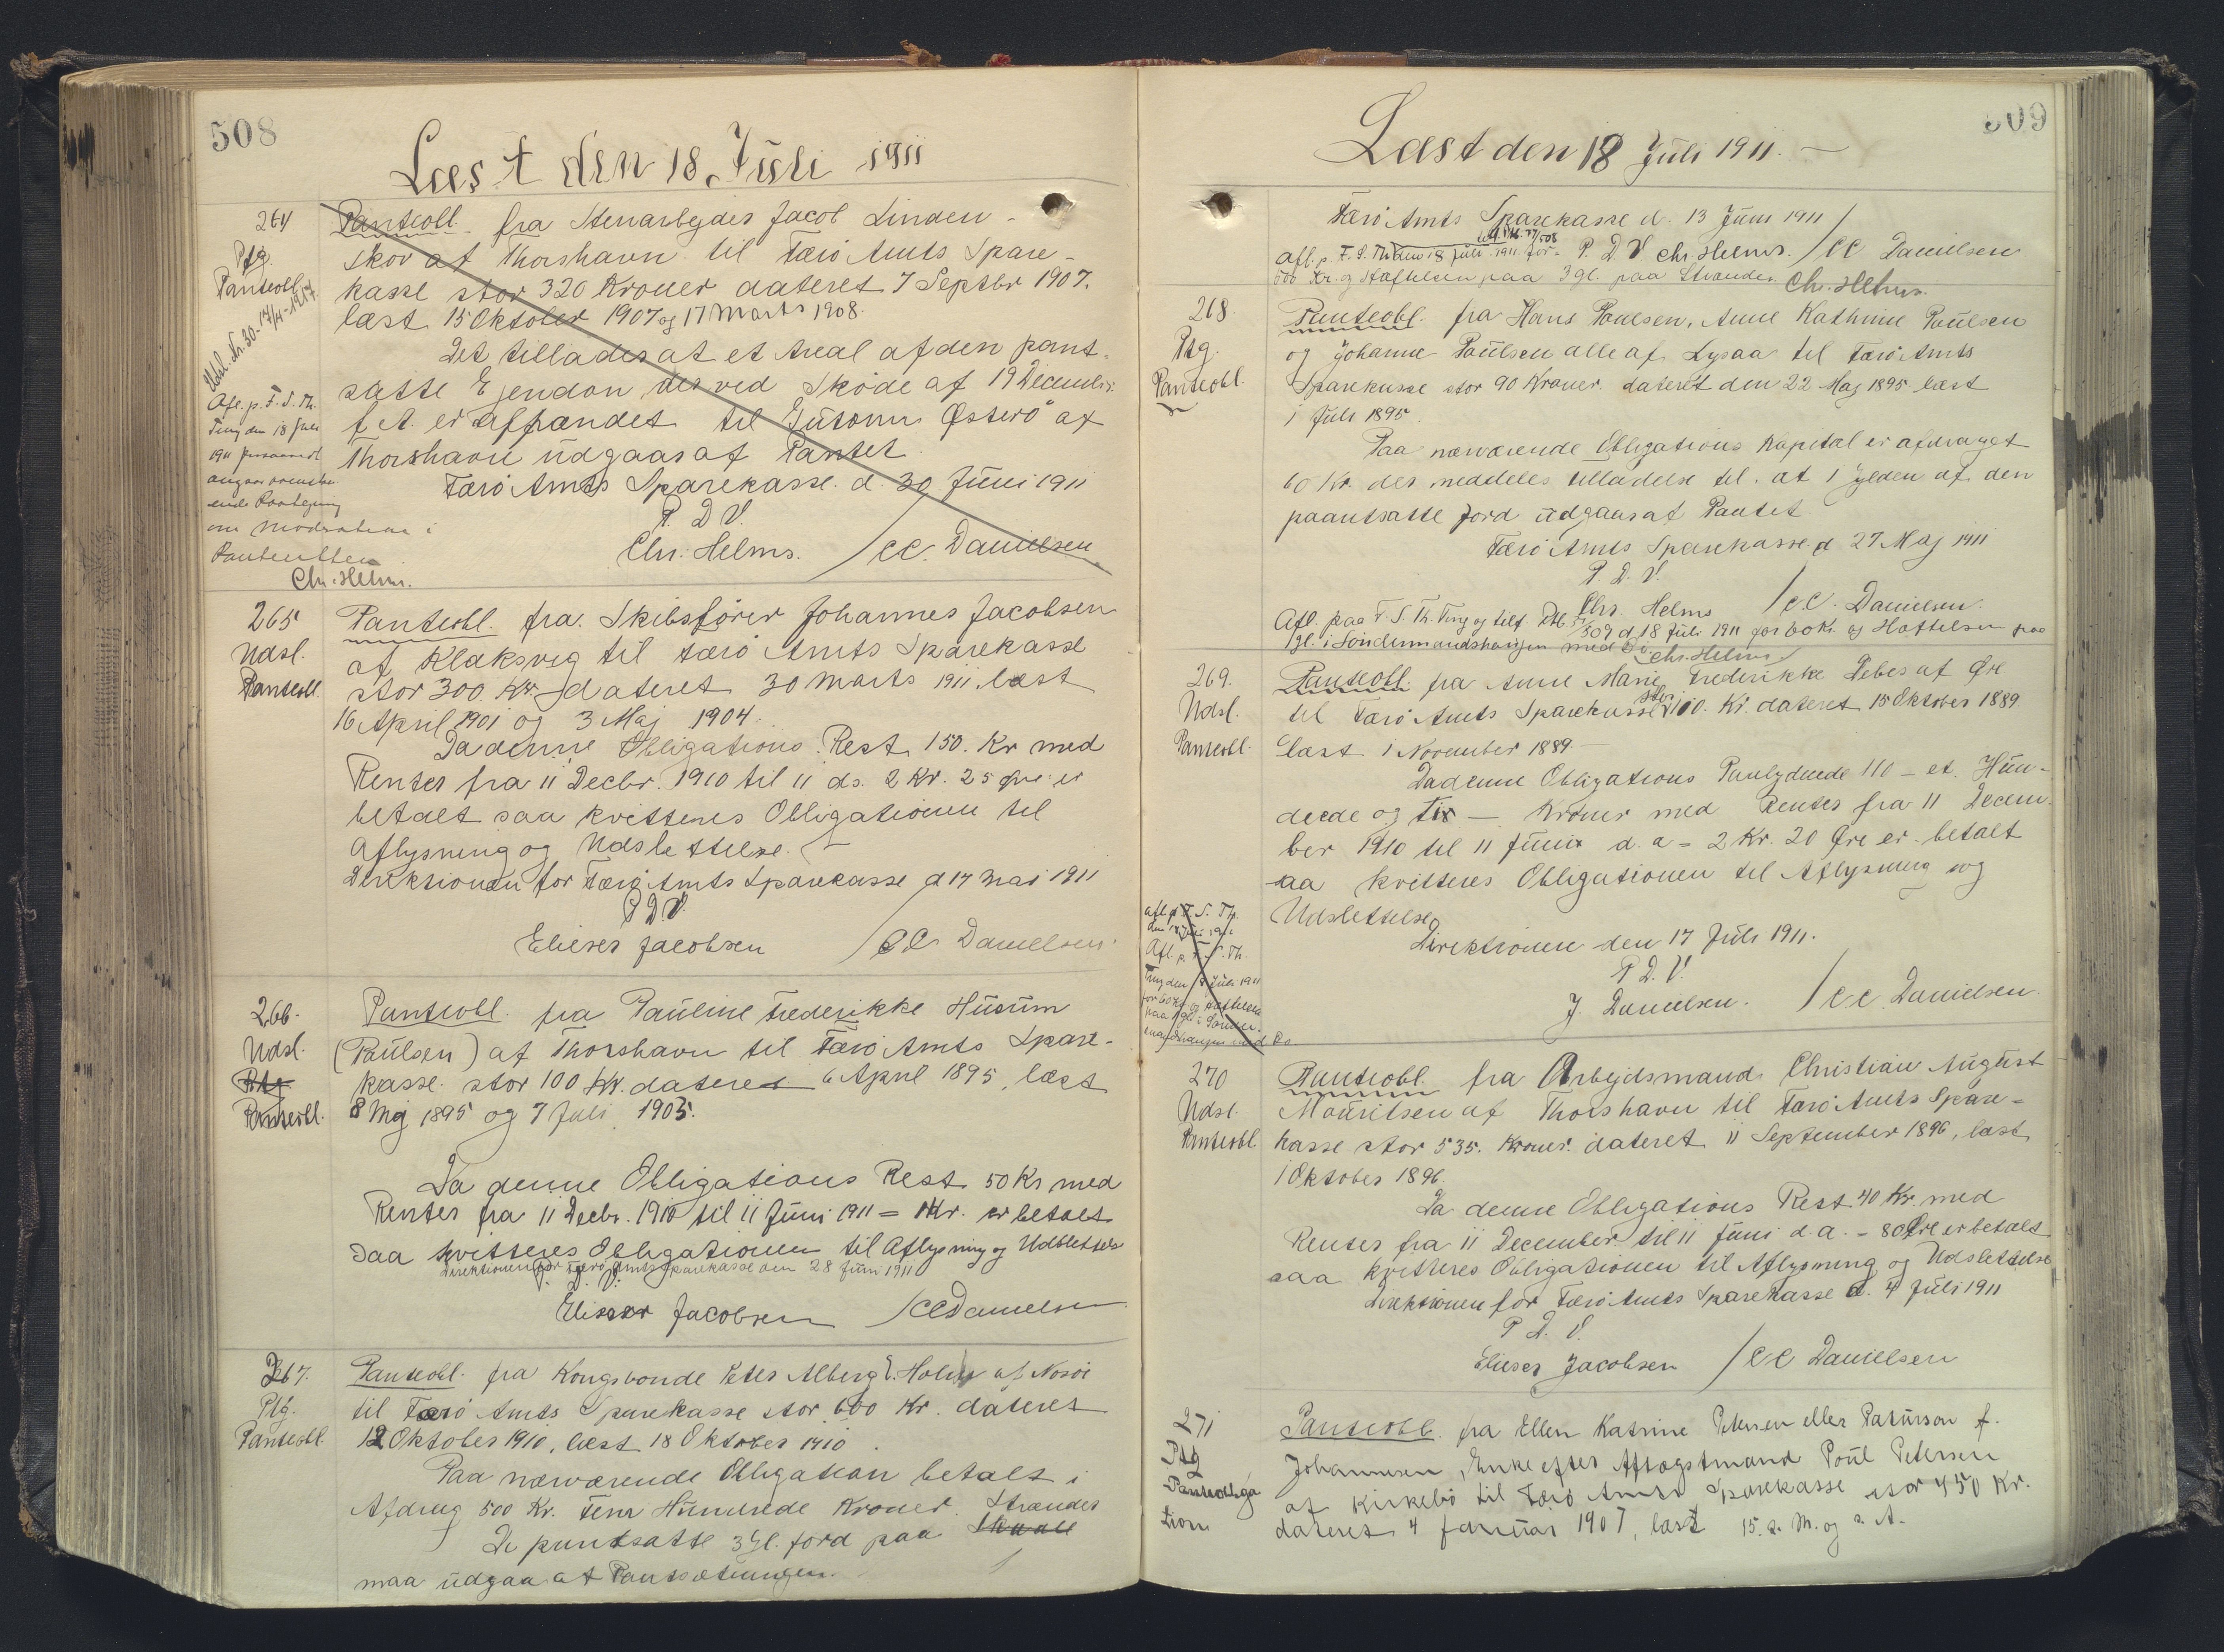 508
Læst den 18 Juli 1911
264
Ptg.
Panteobl.
Udsl. Nr. 30. 17/4-1917.
Afl. p. F. S. Th.
Ting den 18 Juli
1911
ende Paategning
om Moderation i
Panteretten
Chr. Helms.
Panteobl. fra Stenarbejder Jacob Linden-
skov af Thorshavn til Færø Amts Spare-
kasse stor 320 Kroner dateret 7 Septbr 1907.
læst 15 Oktober 1907 og 17 Marts 1908.
Det tillades at et Areal af den pant-
satte Ejendom, der ved Skøde af 19 December
f. A. er afhændet til Guttorm Østerø af
Thorshavn udgaar af Pantet
Færø Amts Sparekasse d. 30 Juni 1911
P. D. V.
Chr. Helms. / C.C. Danielsen
265
Udsl.
Panteobl.
Panteobl. fra Skibsfører Johannes Jacobsen
af Klaksvig til Færø Amts Sparekasse
stor 300 Kr dateret 30 Marts 1911. læst
16 April 1901 og 3 Maj 1904.
Da denne Obligations Rest 150. Kr med
Renter fra 11 Decbr. 1910 til 11 ds. 2 Kr. 25 Øre er
betalt saa kvitteres Obligationen til
Aflysning og Udslettelse.
Direktionen for Færø Amts Sparekasse d 17 Mai 1911
P. D. V.
Elieser Jacobsen / C.C. Danielsen
266.
Udsl.
Ptg
Panteobl.
Panteobl. fra Pauline Frederikke Husum
(Paulsen) af Thorshavn til Færø Amts Spare-
kasse stor 100 Kr. dateret 6 April 1895, læst
8 Maj 1895 og 7 Juli 1903.
Da denne Obligations Rest 50 Kr med
Renter fra 11 Decbr. 1910 til 11 Juni 1911 = 1 Kr. er betalt
saa kvitteres Obligationen til Aflysning og Udslettelse
Direktionen for Færø Amts Sparekasse den 28 Juni 1911
P. D. V.
Elieser Jacobsen / CC Danielsen
267.
Ptg.
Panteobl.
Panteobl. fra Kongsbonde Peter Alberg Holm af Nosøi
til Færø Amts Sparekasse stor 600 Kr. dateret
12 Oktober 1910, læst 18 Oktober 1910.
Paa nærværende Obligation betalt i
Afdrag 500 Kr. Fem Hundrede Kroner.
De pantsatte 3 Gl. Jord paa Strænder
maa udgaa af Pantsætningen.
509
Læst den 18 Juli 1911. —
Færø Amts Sparekasse d. 13 Juni 1911
Afl. p. F. S. Th. den 18 Juli 1911 for P. D. V. Chr. Helms. / CC Danielsen
500 Kr. og Hæftelsen paa 3 gl. paa Strænder. Chr. Helms.
268
Ptg.
Panteobl.
Panteobl. fra Hans Poulsen, Anne Kathrine Poulsen
og Johanne Poulsen alle af Lysaa til Færø Amts
Sparekasse stor 90 Kroner. dateret den 22 Maj 1895 læst
1 Juli 1895.
Paa nærværende Obligations Kapital er afdraget
60 Kr. der meddeles tilladelse til at 1 Gylden af den
paantsatte Jord udgaar af Pantet
Færø Amts Sparekasse. d 27 Maj 1911
P. D. V.
Chr. Helms / C.C. Danielsen.
Afl. paa F. S. Th. Ting og tilf. Ptb. 509 d. 18 Juli 1911 for 60 Kr. og Hæftelsen paa
1 gl. i Sondermandshaugen med Do. Chr. Helms
269.
Udsl.
Panteobl.
Panteobl. fra Anne Marie Frederikke Debes af Øre
til Færø Amts Sparekasse stor 110. Kr. dateret 15 Oktober 1889
læst 1 November 1889.—
Da denne Obligations Paalydende 110 - et Hun-
drede og Tir — Kroner med Renter fra 11 Decem-
ber 1910 til 11 Juni d. a = 2 Kr. 20 Øre er betalt
saa kvitteres Obligationen til Aflysning og
Udslettelse
Direktionen den 17 Juli 1911.
P. D. V.
J. Danielsen. / C.C. Danielsen.
Afl. p. F. S. Th.
Ting den 18 Juli 1911
for 60 Kr. og Hæftelsen
paa 1 gl. i Sonder-
mandshaugen med Do
270
Udsl.
Panteobl.
Panteobl. fra Arbejdsmand Christian August
Mouritsen af Thorshavn til Færø Amts Spare-
kasse stor 535. Kroner. dateret 11 September 1896, læst
1 Oktober 1896.
Da denne Obligations Rest 40 Kr. med
Renter fra 11 December til 11 Juni d. a. = 80 Øre er betalt
saa kvitteres Obligationen til Aflysning og Udslettelse
Direktionen for Færø Amts Sparekasse d. 4 Juli 1911
P. D. V.
Elieser Jacobsen / CC Danielsen
271
Ptg
Panteobliga
tion
Panteobl. fra Ellen Katrine Petersen eller Patursson f.
Johannesen, Enke efter Aftægtsmand Poul Petersen
af Kirkebø til Færø Amts Sparekasse stor 450 Kr.
dateret 4 Januar 1907, læst 15. s. M. og s. A.